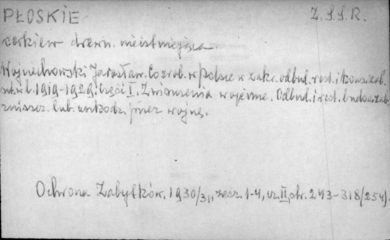 PŁOSKIE Z.S.S.R.
cerkiew drewn. nieistniejąca
Wojciechowski Jarosław. Co zrob. w Polsce w zakr. odbud. rest. i konserwacji
1919-1929. Część I. Zniszczenia wojenne. Odbud. i rest. budow. zab.
zniszcz. lub uszkodz. przez wojnę.
Ochrona Zabytków, 1930/31, zesz. 1-4, cz. II, str. 243-318/254/.